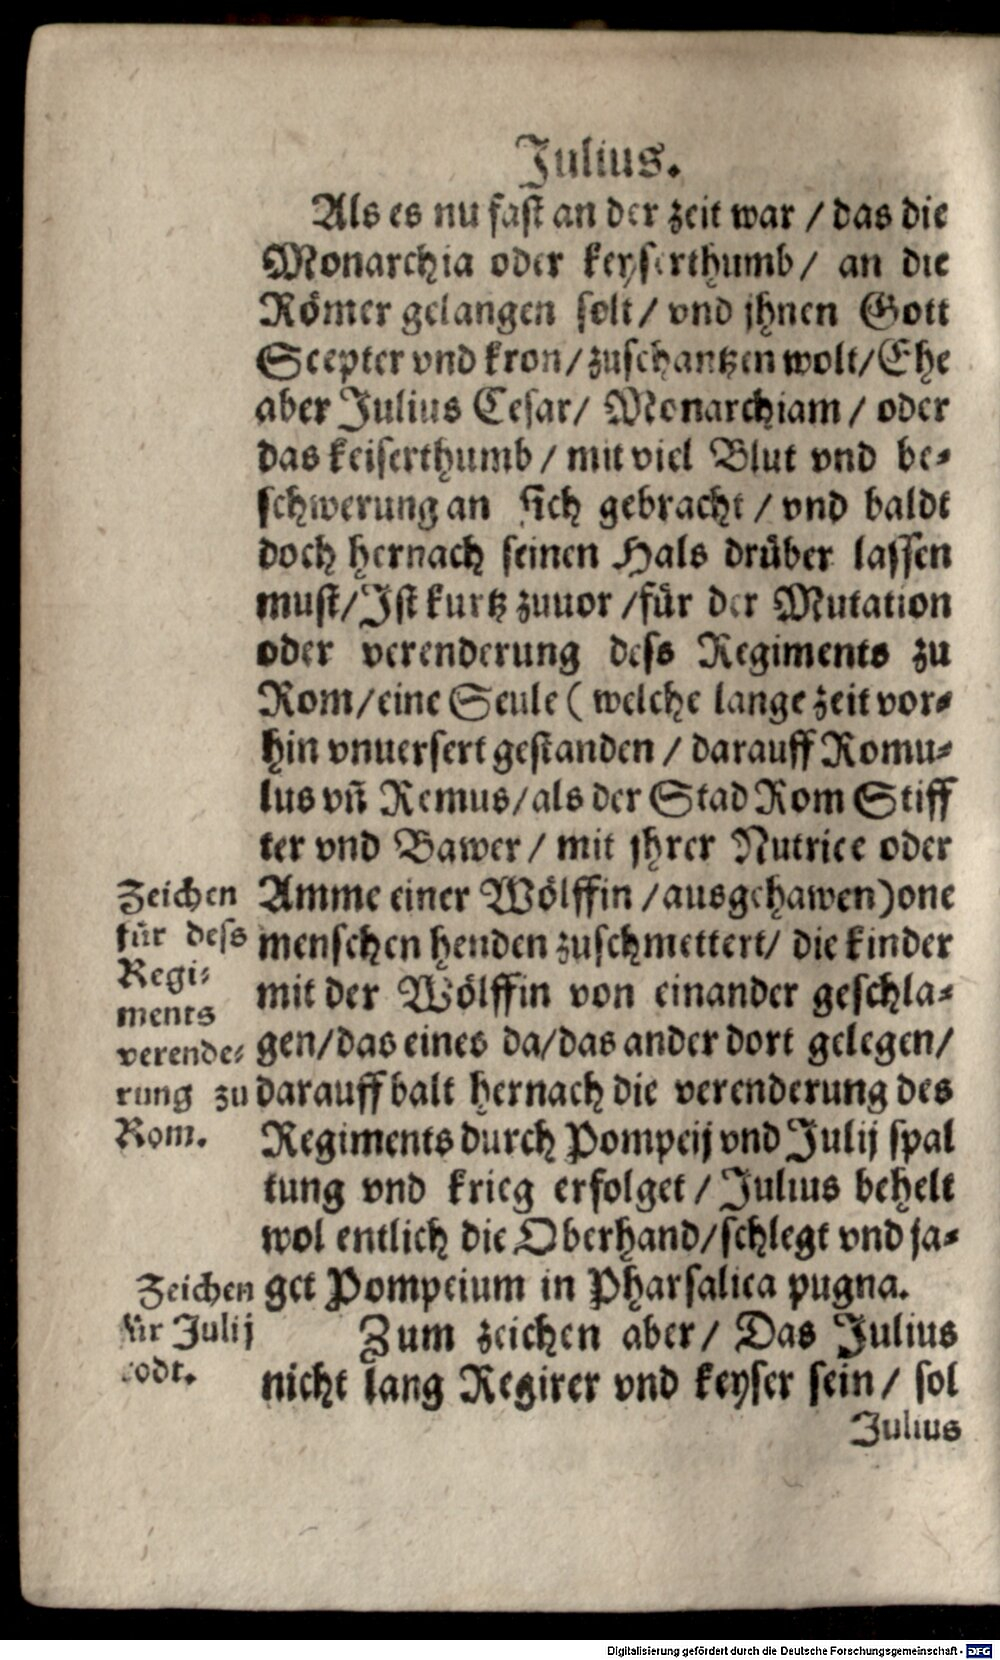 Julius.
Als es nu fast an der zeit war / das die
Monarchia oder keyserthumb / an die
Römer gelangen solt / vnd jhnen Gott
Scepter vnd kron / zuschantzen wolt / Ehe
aber Julius Cesar / Monarchiam / oder
das keiserthumb / mit viel Blut vnd be-
schwerung an sich gebracht / vnd baldt
doch hernach seinen Hals drüber lassen
must / Ist kurtz zuuor / für der Mutation
oder verenderung dess Regiments zu
Rom / eine Seule ( welche lange zeit vor-
hin vnuersert gestanden / darauff Romu-
lus vn̄ Remus / als der Stad Rom Stiff
ter vnd Bawer / mit jhrer Nutrice oder
Amme einer Wölffin / ausgehawen) one
menschen henden zuschmettert / die kinder
mit der Wölffin von einander geschla-
gen / das eines da / das ander dort gelegen /
darauff balt hernach die verenderung des
Regiments durch Pompeij vnd Julij spal
tung vnd krieg erfolget / Julius behelt
wol entlich die Oberhand / schlegt vnd ja-
get Pompeium in Pharsalica pugna.
Zum zeichen aber / Das Julius
nicht lang Regirer vnd keyser sein / sol
Julius
Zeichen
für dess
Regi-
ments
verende-
rung zu
Rom.
Zeichen
für Julij
todt.
Digitalisierung gefördert durch die Deutsche Forschungsgemeinschaft - DFG